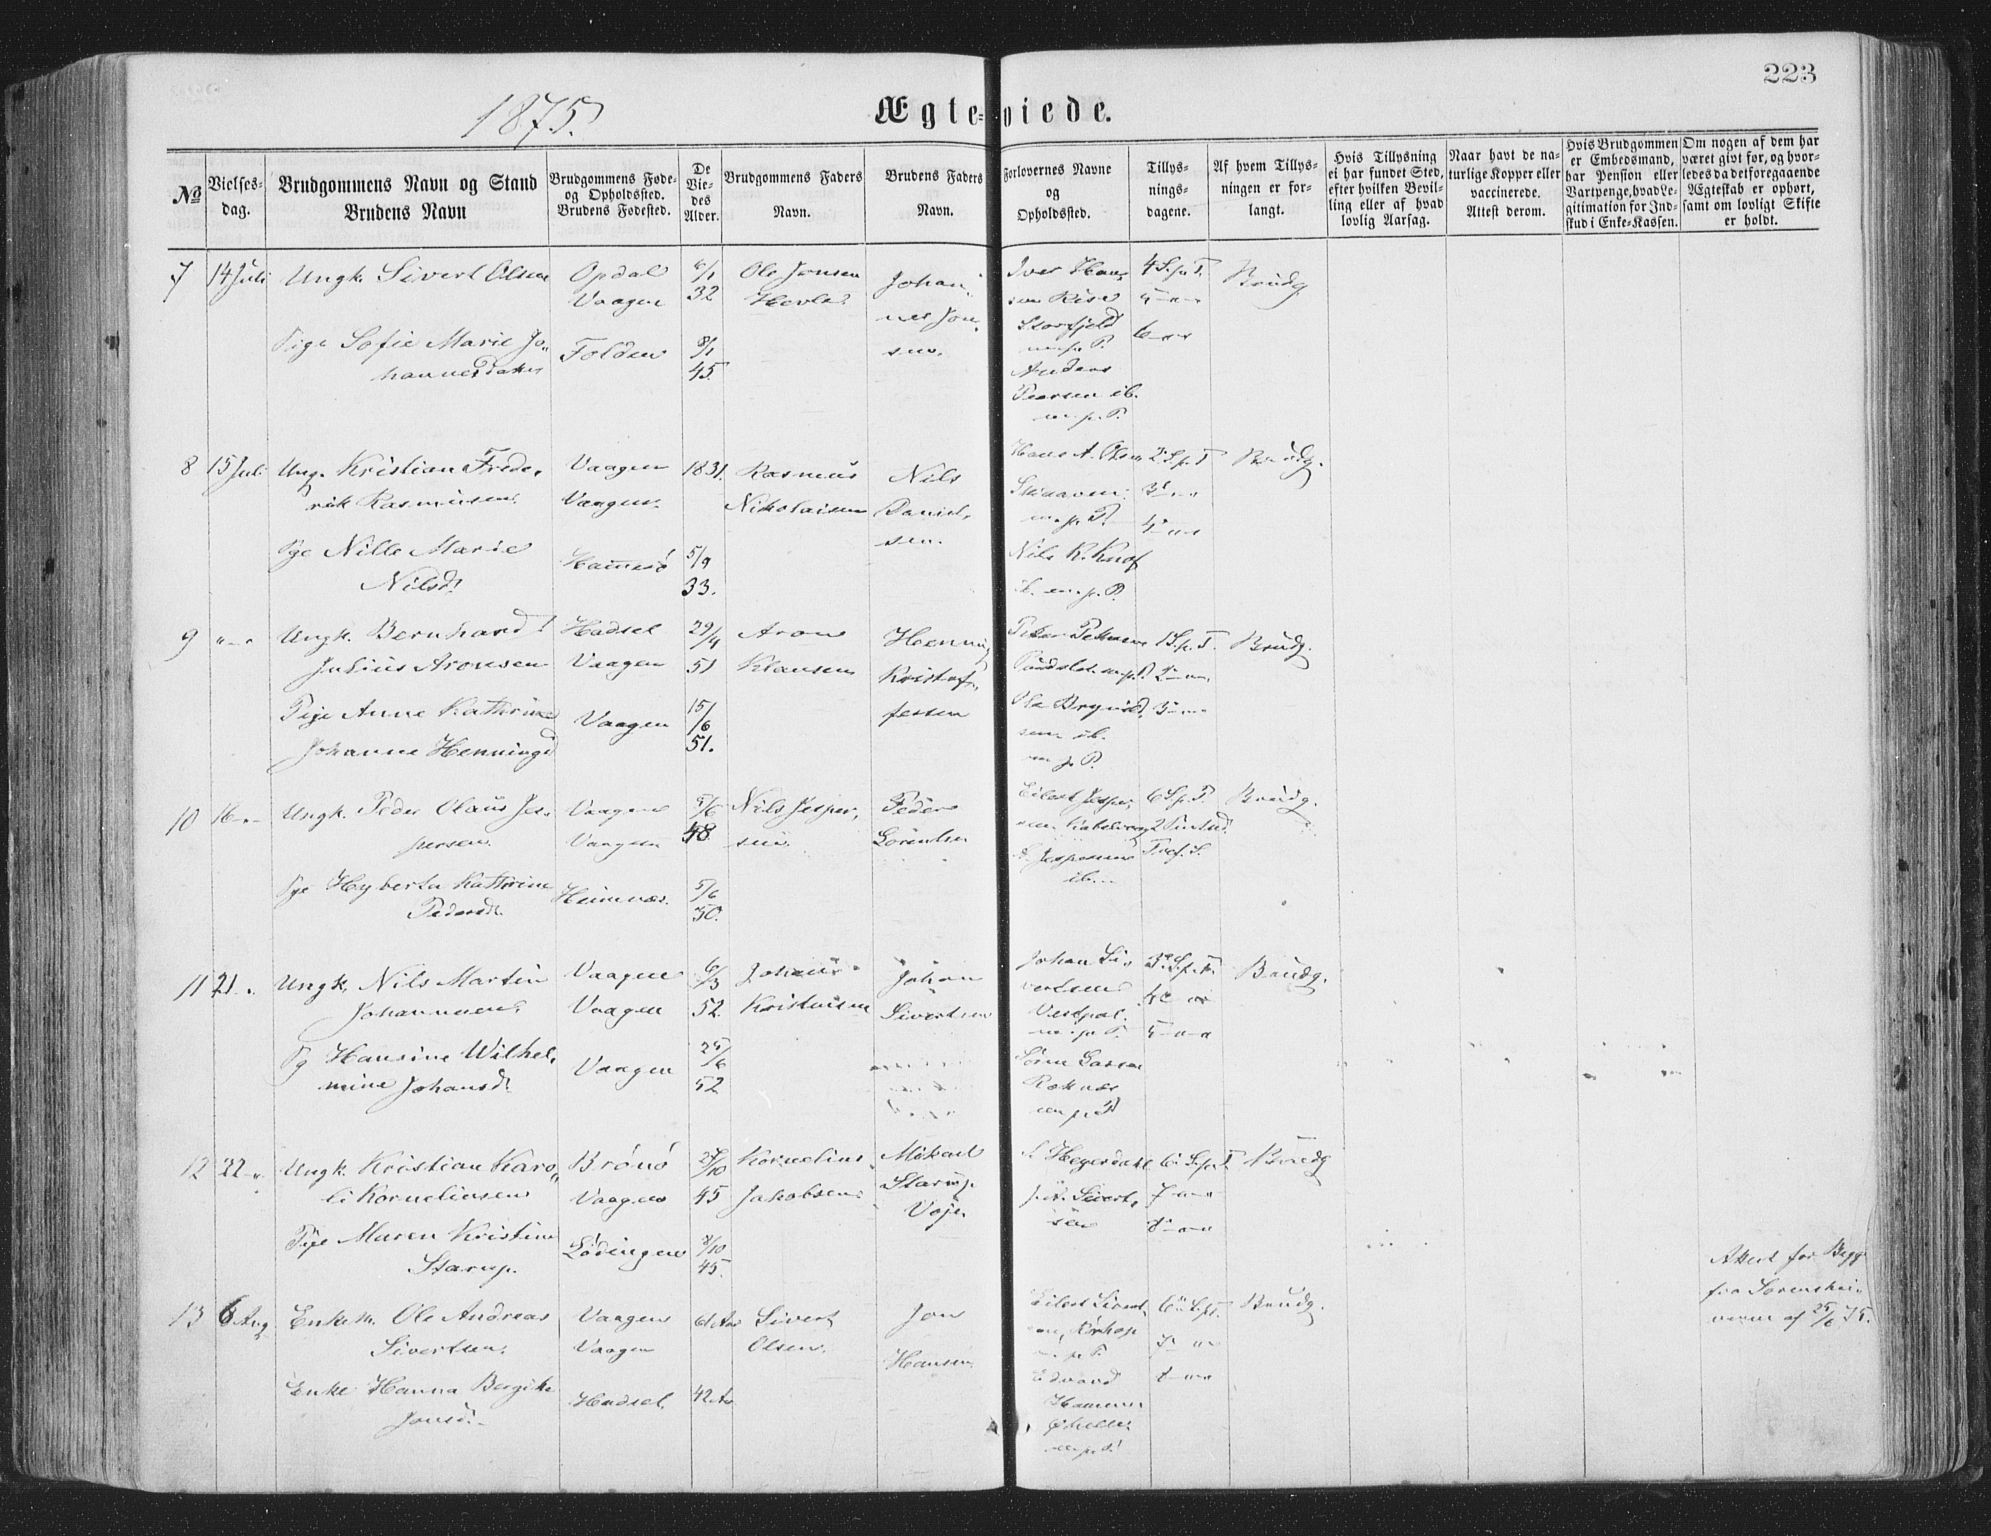 223
1875.
Ægteviede.
No
Vielses-
dag.
Brudgommens Navn og Stand
Brudens Navn
Brudgommens Føde-
og Opholdssted.
Brudens Fødested.
De
Vie-
des
Alder.
Brudgommens Faders
Navn.
Brudens Faders
Navn.
Forlovernes Navne
og
Opholdssted.
Tillys-
nings-
dagene.
Af hvem Tillys-
ningen er for-
langt.
Hvis Tillysning
ei har fundet Sted,
efter hvilken Bevil-
ling eller af hvad
lovlig Aarsag.
Naar havt de na-
turlige Kopper eller
vaccinerede.
Attest derom.
Hvis Brudgommen
er Embedsmand,
har Pension eller
Vartpenge, hvad Le-
gitimation for Ind-
skud i Enke-Kassen.
Om nogen af dem har
været givt før, og hvor-
ledes da det foregaaende
Ægteskab er ophørt,
samt om lovligt Skifte
er holdt.
7 14 Juli
Ungk. Sivert Olsen
Pige Sofie Marie Jo-
hannesdatter
Opdal
Vaagen
Folden
32
8/1
45.
Ole Jonsen
Johan-
nes Jon-
sen.
Iver Han-
sen Rise
Storfjeld
m. p. P.
Anders
ib.
m. p. P.
4 S. p. T.
5 — " —
6 — " —
Brudg.
8 15 Juli
Ung. Kristian Frede-
rik Rasmussen.
Pge Nille Marie
Nilsd.
Vaagen
Vaagen.
Hammerø
1831.
5/9
33.
Rasmus
Nikolaisen
Nils
Daniel-
sen.
Hans A. Olsen
m. p. P.
Nils K. Knof
ib. m. p. P.
2 S. p. T
3 — " —
4 — " —
Brudg.
9 " — "
Ungk. Bernhard
Julius Aronsen
Pige Anne Kathrine
Johanne Henningsd
Hadsel
Vaagen
Vaagen
29/4
51
15/6
51.
Aron
Klausen
Henning
Kristof-
fersen
Peter
m. p. P.
Ole
sen ib.
m. p. P.
1 S. p. T.
2 — " —
3 — " —
Brudg.
10 16 — " —
Ungk. Peder Olaus Jes-
persen.
Pge Hyberta Kathrine
Pedersd.
Vaagen
Vaagen
5/6
48
5/6
50.
Nils Jesper-
sen.
Peder
Lorentsen
Eilert Jesper-
sen
Jespersen
ib. —
6 S. p. T.
Brudg.
11 21 — "
Ungk. Nils Martin
Johannesen.
Pg Hansine Wilhel-
mine Johansd.
Vaagen
Vaagen
Vaagen
6/3
52.
25/6
52
Kristensen
Johan
Sivertsen
Johan Si-
vertsen
m. p. P.
m. p. P
3 S. p. T.
4 — " —
5 — " —
Brudg.
12 22 — "
Ungk. Kristian Karo-
li Korneliussen
Pige Maren Kristine
Starup.
Brønø
Vaagen
Lødingen
27/10
45
8/10
45.
Kornelius
Jakobsen
Mikael
Starup
Voje.
Sivert-
sen
6 S. p. T.
7 — " —
8 — " —
Brudg
13 6 Aug
Enkem. Ole Andreas
Sivertsen.
Enke Hanna Bergithe
Jonsd. —
Vaagen
Vaagen
Hadsel.
61 Aar
42 Aar
Sivert
Olsen.
Jon
Hansen
Eilert Sivert-
sen, Ørshop
m. p. P.
Edvard
Hammer
m. p. P.
6 S. p. T.
7 — " —
8 — " —
Brudg.
Attest for Begge
fra Sorenskri-
veren af 25/6 75.